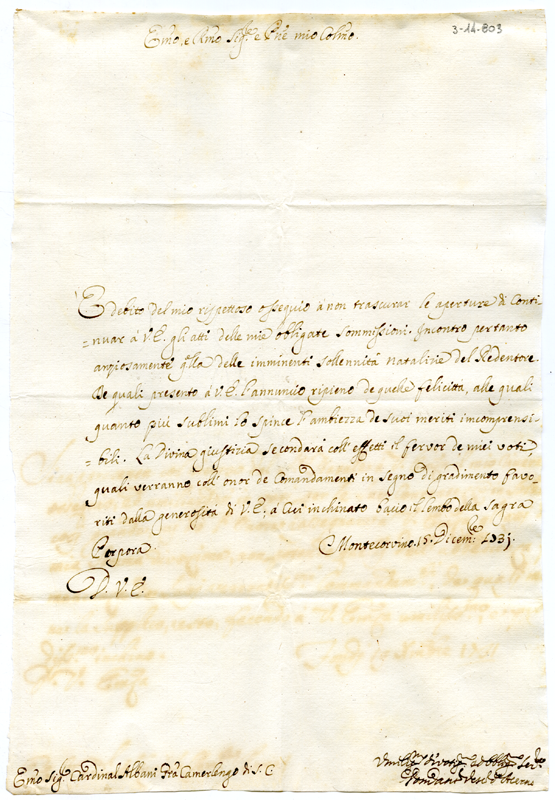 3-14-803
Emo, e Rmo Sig.r e Pne mio Colmo.
E debito del mio rispettoso ossequio à non trascurar le aperture di Conti
=nuar à V.E. gli atti delle mie obligate sommissioni. Incontro pertanto
anziosamente q.lla delle imminenti sollennità natalizie del Redentore.
De quali presento à V.E. l'annuncio ripieno de quelle felicità, alle quali
quanto più sublimi lo spince l'ambiezza de suoi meriti incomprensi
=bili. La Divina giustizia secondarà coll'effetti il fervor de miei voti,
quali verranno coll'onor de Comandamenti in segno di gradimento favo
riti dalla generosità di V.E. à Cui inchinato bacio il lembo della sagra
Porpora. Montecorvino 15. Dicem.e 1731.
D. V. E.
Emo Sig.r Cardinal Albani Camerlengo di S.C